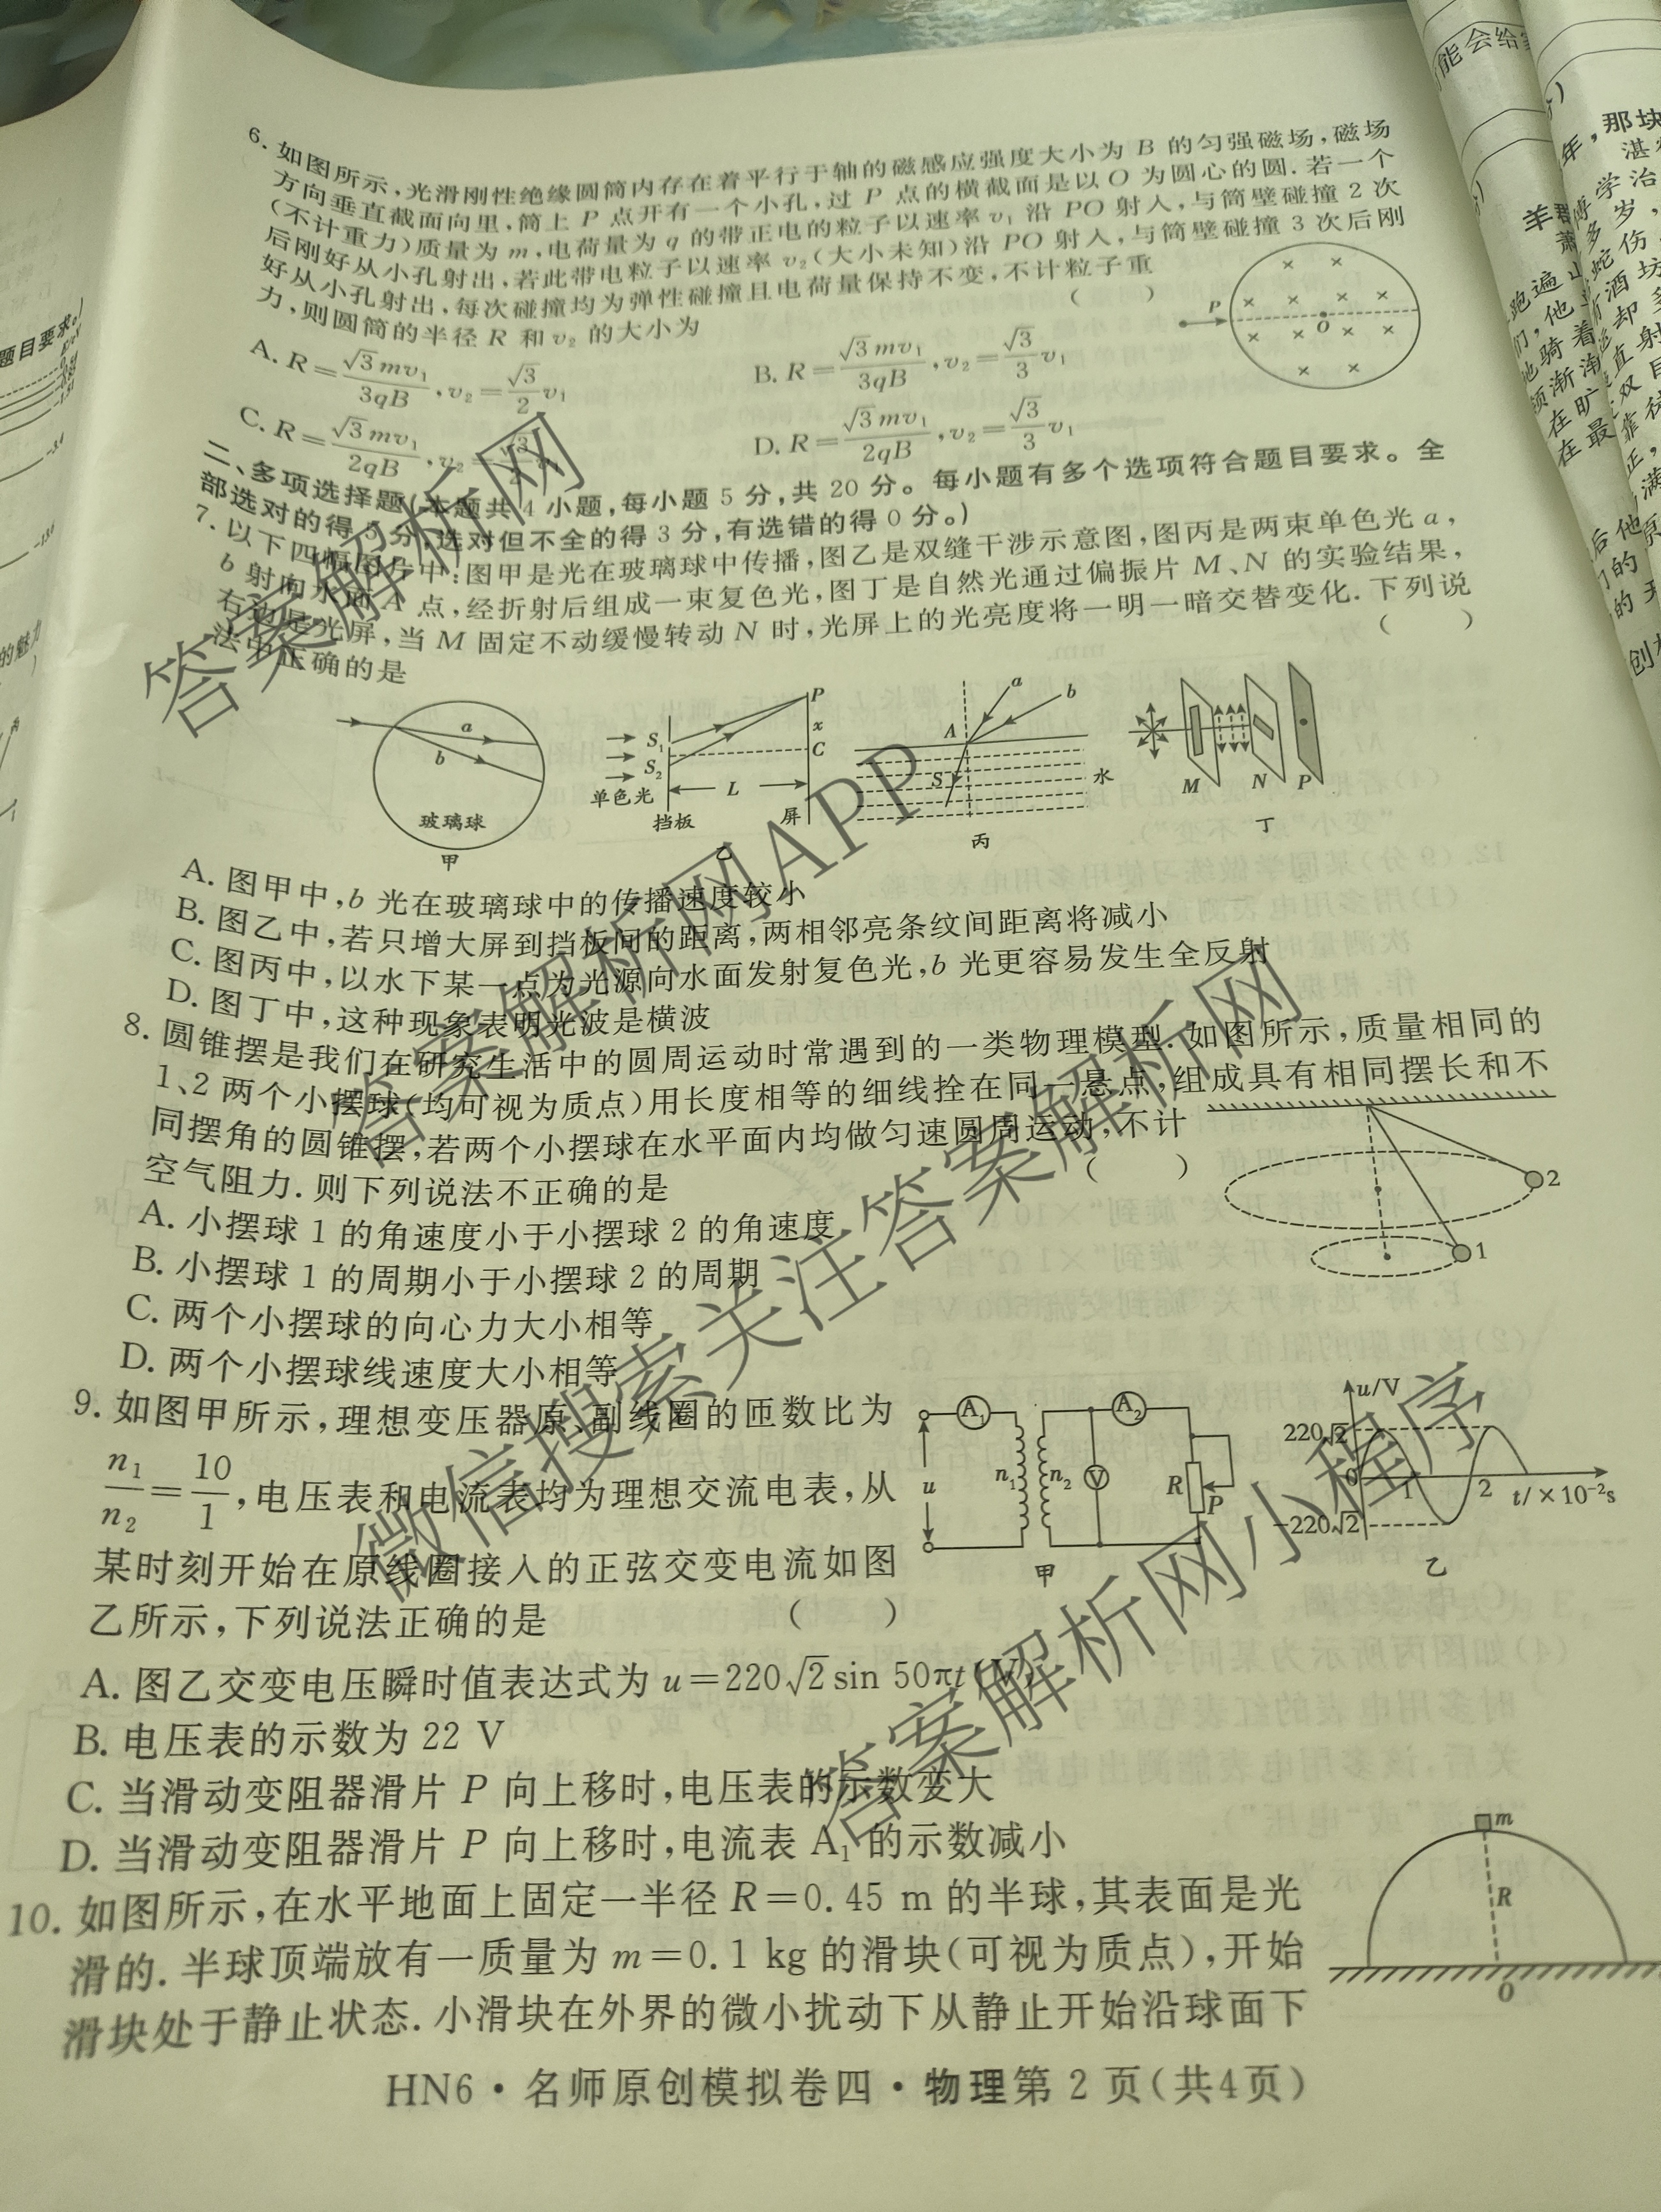 6. 如图所示,光滑刚性绝缘圆筒内存在着平行于轴的磁感应强度大小为 B 的匀强磁场,磁场
方向垂直截面向里,筒上 P 点开有一个小孔,过 P 点的横截面是以 O 为圆心的圆. 若一个
(不计重力)质量为 m,电荷量为 q 的带正电的粒子以速率 v₁ 沿 PO 射入,与筒壁碰撞 2 次
后刚好从小孔射出,若此带电粒子以速率 v₂(大小未知)沿 PO 射入,与筒壁碰撞 3 次后刚
好从小孔射出,每次碰撞均为弹性碰撞且电荷量保持不变,不计粒子重
力,则圆筒的半径 R 和 v₂ 的大小为 ( )
P O
A. R=√3mv₁/3qB,v₂=√3/2 v₁
B. R=√3mv₁/3qB,v₂=√3/3 v₁
C. R=√3mv₁/2qB,v₂=√3/2 v₁
D. R=√3mv₁/2qB,v₂=√3/3 v₁
二、多项选择题(本题共 4 小题,每小题 5 分,共 20 分。每小题有多个选项符合题目要求。全
部选对的得 5 分,选对但不全的得 3 分,有选错的得 0 分。)
7. 以下四幅图片中:图甲是光在玻璃球中传播,图乙是双缝干涉示意图,图丙是两束单色光 a,
b 射向水面 A 点,经折射后组成一束复色光,图丁是自然光通过偏振片 M、N 的实验结果,
右边是光屏,当 M 固定不动缓慢转动 N 时,光屏上的光亮度将一明一暗交替变化. 下列说
法中正确的是 ( )
a b 玻璃球 甲
S₁ S₂ 单色光 挡板 L 屏 P x C 乙
a b A S 水 丙
M N P 丁
A. 图甲中,b 光在玻璃球中的传播速度较小
B. 图乙中,若只增大屏到挡板间的距离,两相邻亮条纹间距离将减小
C. 图丙中,以水下某一点为光源向水面发射复色光,b 光更容易发生全反射
D. 图丁中,这种现象表明光波是横波
8. 圆锥摆是我们在研究生活中的圆周运动时常遇到的一类物理模型. 如图所示,质量相同的
1、2 两个小摆球(均可视为质点)用长度相等的细线拴在同一悬点,组成具有相同摆长和不
同摆角的圆锥摆,若两个小摆球在水平面内均做匀速圆周运动,不计
空气阻力. 则下列说法不正确的是 ( )
2
1
A. 小摆球 1 的角速度小于小摆球 2 的角速度
B. 小摆球 1 的周期小于小摆球 2 的周期
C. 两个小摆球的向心力大小相等
D. 两个小摆球线速度大小相等
9. 如图甲所示,理想变压器原、副线圈的匝数比为
n₁/n₂=10/1,电压表和电流表均为理想交流电表,从
某时刻开始在原线圈接入的正弦交变电流如图
乙所示,下列说法正确的是 ( )
A₁ u n₁ n₂ V A₂ R P 甲
u/V 220√2 0 1 2 t/×10⁻²s -220√2 乙
A. 图乙交变电压瞬时值表达式为 u=220√2sin 50πt(V)
B. 电压表的示数为 22 V
C. 当滑动变阻器滑片 P 向上移时,电压表的示数变大
D. 当滑动变阻器滑片 P 向上移时,电流表 A₁ 的示数减小
10. 如图所示,在水平地面上固定一半径 R=0.45 m 的半球,其表面是光
滑的. 半球顶端放有一质量为 m=0.1 kg 的滑块(可视为质点),开始
滑块处于静止状态. 小滑块在外界的微小扰动下从静止开始沿球面下
m R O
HN6·名师原创模拟卷四·物理第 2 页(共4页)
答案解析网
答案解析网APP
微信搜索关注答案解析网
答案解析网小程序